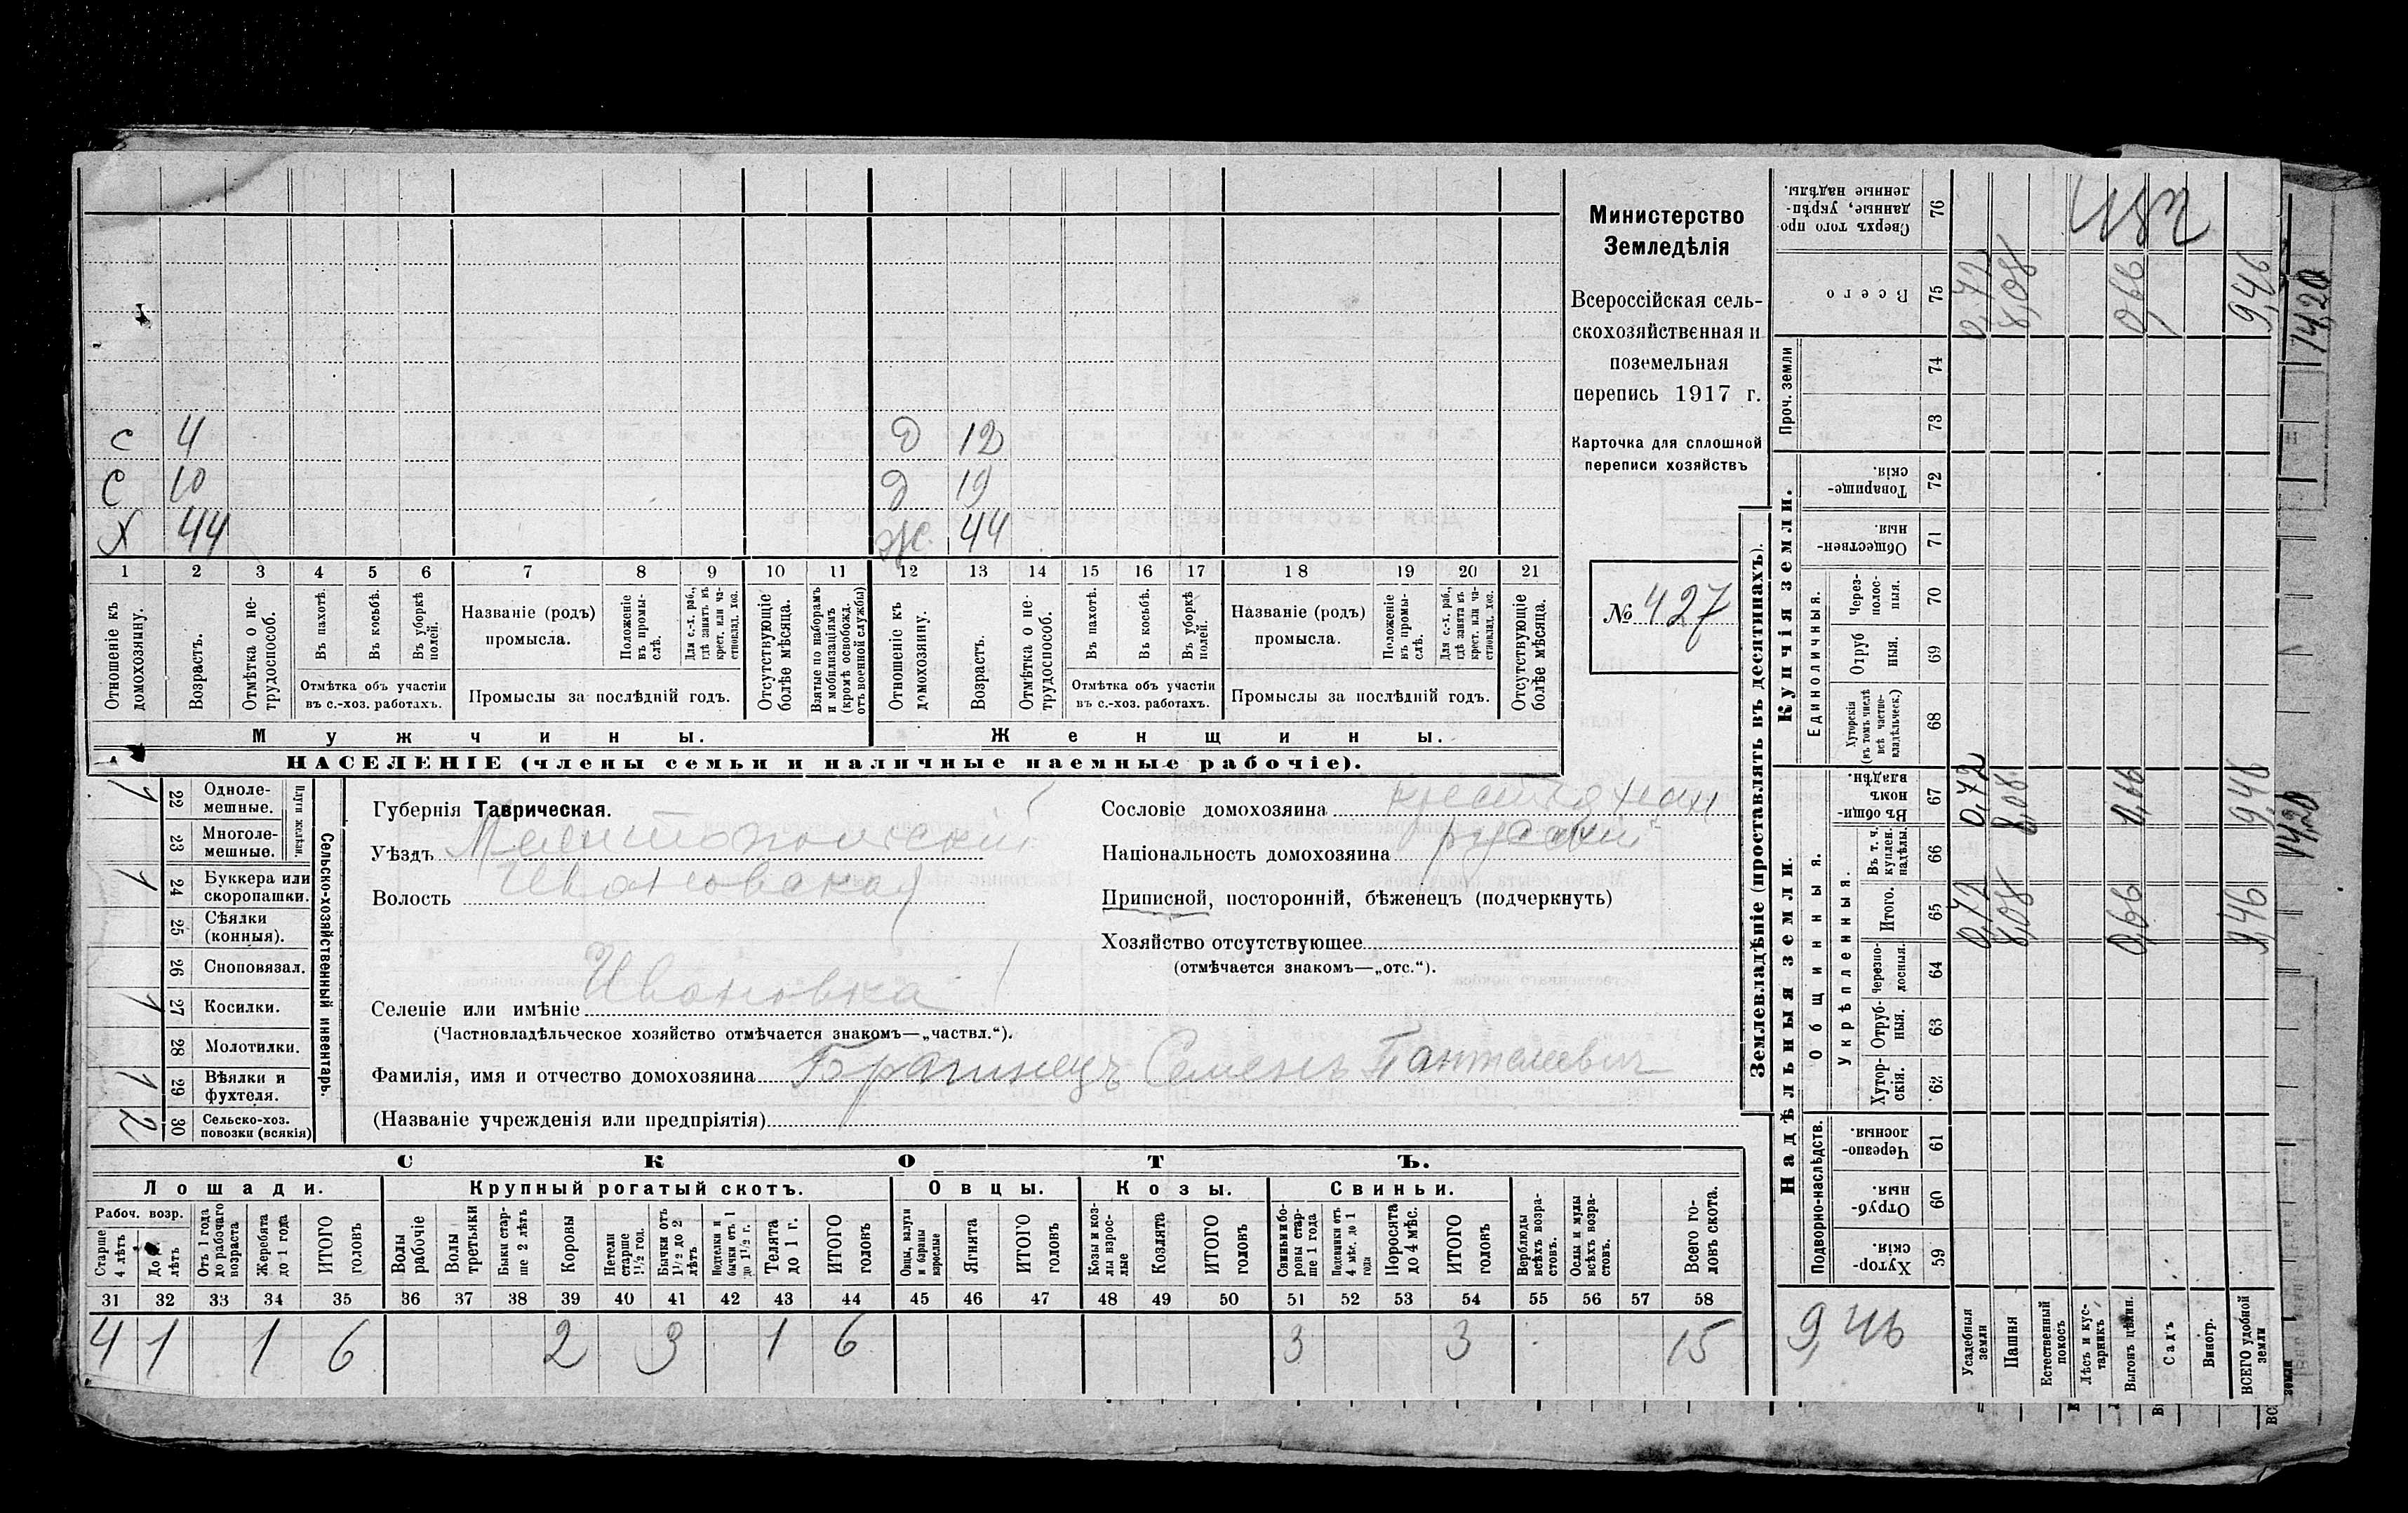 с 4 д 12
с 10 д 19
х 44 ж 44
1 2 3 4 5 6 7 8 9 10 11 12 13 14 15 16 17 18 19 20 21
Отношеніе къ домохозяину.
Возрастъ.
Отмѣтка о нетрудоспособ.
Въ пахотѣ.
Въ косьбѣ.
Въ уборкѣ полей.
Отмѣтка объ участіи
въ с.-хоз. работахъ.
Названіе (родъ)
промысла.
Положеніе въ промыслѣ.
Для с.-х. раб., гдѣ занятъ въ крест. или частновлад. хоз.
Промыслы за послѣдній годъ.
Отсутствующіе болѣе мѣсяца.
Взятые по наборамъ и мобилизаціямъ (кромѣ освобожд. отъ военной службы)
Отношеніе къ домохозяину.
Возрастъ.
Отмѣтка о нетрудоспособ.
Въ пахотѣ.
Въ косьбѣ.
Въ уборкѣ полей.
Отмѣтка объ участіи
въ с.-хоз. работахъ.
Названіе (родъ)
промысла.
Положеніе въ промыслѣ.
Для с.-х. раб., гдѣ занята въ крест. или частновлад. хоз.
Промыслы за послѣдній годъ.
Отсутствующіе болѣе мѣсяца.
Мужчины. Женщины.
НАСЕЛЕНІЕ (члены семьи и наличные наемные рабочіе).
Министерство
Земледѣлія
Всероссійская сель-
скохозяйственная и
поземельная
перепись 1917 г.
Карточка для сплошной
переписи хозяйствъ
№ 427
Сельско-хозяйственный инвентарь.
Плуги желѣзн.
1 22 Однолемешные.
23 Многолемешные.
1 24 Буккера или скоропашки.
25 Сѣялки (конныя).
26 Сноповязал.
1 27 Косилки.
28 Молотилки.
1 29 Вѣялки и фухтеля.
2 30 Сельско-хоз. повозки (всякія)
Губернія Таврическая.
Уѣздъ Мелитопольскій
Волость Ивановская
Сословіе домохозяина крестьянин
Національность домохозяина русскій
Приписной, посторонній, бѣженецъ (подчеркнуть)
Хозяйство отсутствующее
(отмѣчается знакомъ—„отс.“).
Селеніе или имѣніе Ивановка
(Частновладѣльческое хозяйство отмѣчается знакомъ—„частвл.“).
Фамилія, имя и отчество домохозяина Брагинецъ Семенъ Пантелеевич
(Названіе учрежденія или предпріятія)
СКОТЪ.
Лошади. Крупный рогатый скотъ. Овцы. Козы. Свиньи.
Рабоч. возр.
Старше 4 лѣтъ
До лѣтъ
Отъ 1 года до рабочаго возраста
Жеребята до 1 года
ИТОГО головъ
Волы рабочіе
Волы третьяки
Быки старше 2 лѣтъ
Коровы
Нетели старше 1½ год.
Бычки отъ 1½ до 2 лѣтъ
бычки отъ 1 до 1½ г.
Телята до 1 г.
ИТОГО головъ
Овцы, валухи и бараны взрослые
Ягнята
ИТОГО головъ
Козы и козлы взрослые
Козлята
ИТОГО головъ
Свиньи и боровы старше 1 года
Подсвинки отъ 4 мѣс. до 1 года
Поросята до 4 мѣс.
ИТОГО головъ
Верблюды всѣхъ возрастовъ.
Ослы и мулы всѣхъ возрастовъ.
Всего головъ скота.
31 32 33 34 35 36 37 38 39 40 41 42 43 44 45 46 47 48 49 50 51 52 53 54 55 56 57 58
4 1 1 6 2 3 1 6 3 3 15
Землевладѣніе (проставлять въ десятинахъ).
Надѣльныя земли. Купчія земли. Проч. земли
Подворно-наслѣдств.
Общинныя.
Укрѣпленныя.
Единоличныя.
Хуторскія. 59
Отрубныя. 60
Черезполосныя. 61
Хуторскія. 62
Отрубныя. 63
Черезполосныя. 64
Итого. 65
Въ т. ч. куплен. надѣлы. 66
Въ общинномъ владѣн. 67
Хуторскія (въ томъ числѣ всѣ частновладѣльческ.) 68
Отрубныя. 69
Черезполосныя. 70
Общественныя. 71
Товарищескія. 72
73
74
Всего 75
Сверхъ того проданные, укрѣпленные надѣлы. 76
9,46
Усадебныя земли 0,72 0,72 0,72
Пашня 8,08 8,08 8,08
Естественный покосъ
Лѣсъ и кустарникъ
Выгонъ цѣлин. 0,66 0,66 0,66
Садъ
Виногр.
ВСЕГО удобной земли 9,46 9,46 9,46
14,20
14,20